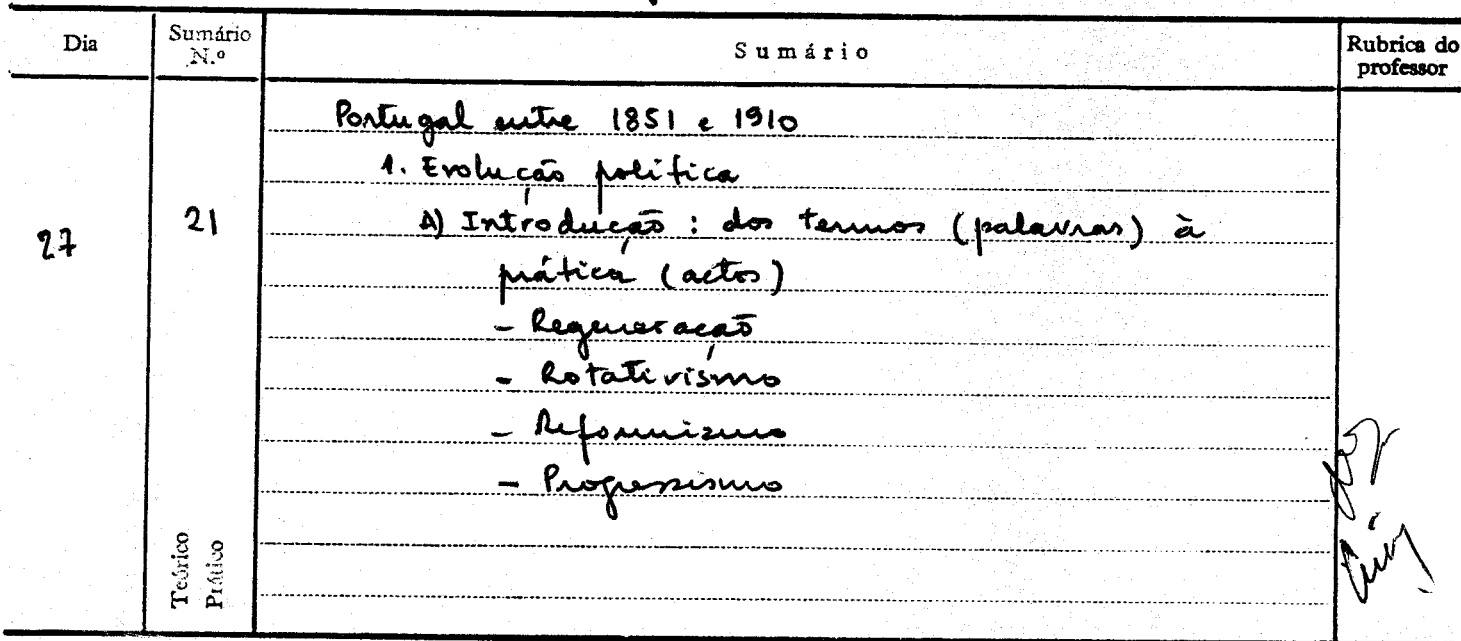 Dia
Sumário N.º
Sumário
Rubrica do professor
27
21
Portugal entre 1851 e 1910
1. Evolução política
A) Introdução : dos termos (palavras) à
prática (actos)
- Regeneração
- Rotativismo
- Reformismo
- Progressismo
Teórico
Prático